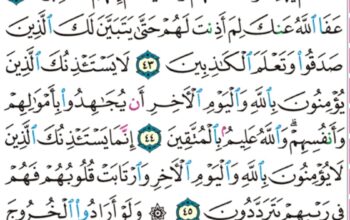 عَفَا ٱللَّهُ عَنكَ لِمَ أَذِنتَ لَهُمْ حَتَّىٰ يَتَبَيَّنَ لَكَ ٱلَّذِينَ
صَدَقُوا۟ وَتَعْلَمَ ٱلْكَـٰذِبِينَ ٤٣ لَا يَسْتَـْٔذِنُكَ ٱلَّذِينَ
يُؤْمِنُونَ بِٱللَّهِ وَٱلْيَوْمِ ٱلْـَٔاخِرِ أَن يُجَـٰهِدُوا۟ بِأَمْوَٰلِهِمْ
وَأَنفُسِهِمْ ۗ وَٱللَّهُ عَلِيمٌۢ بِٱلْمُتَّقِينَ ٤٤ إِنَّمَا يَسْتَـْٔذِنُكَ ٱلَّذِينَ
لَا يُؤْمِنُونَ بِٱللَّهِ وَٱلْيَوْمِ ٱلْـَٔاخِرِ وَٱرْتَابَتْ قُلُوبُهُمْ فَهُمْ
فِى رَيْبِهِمْ يَتَرَدَّدُونَ ٤٥ ۞ وَلَوْ أَرَادُوا۟ ٱلْخُرُوجَ